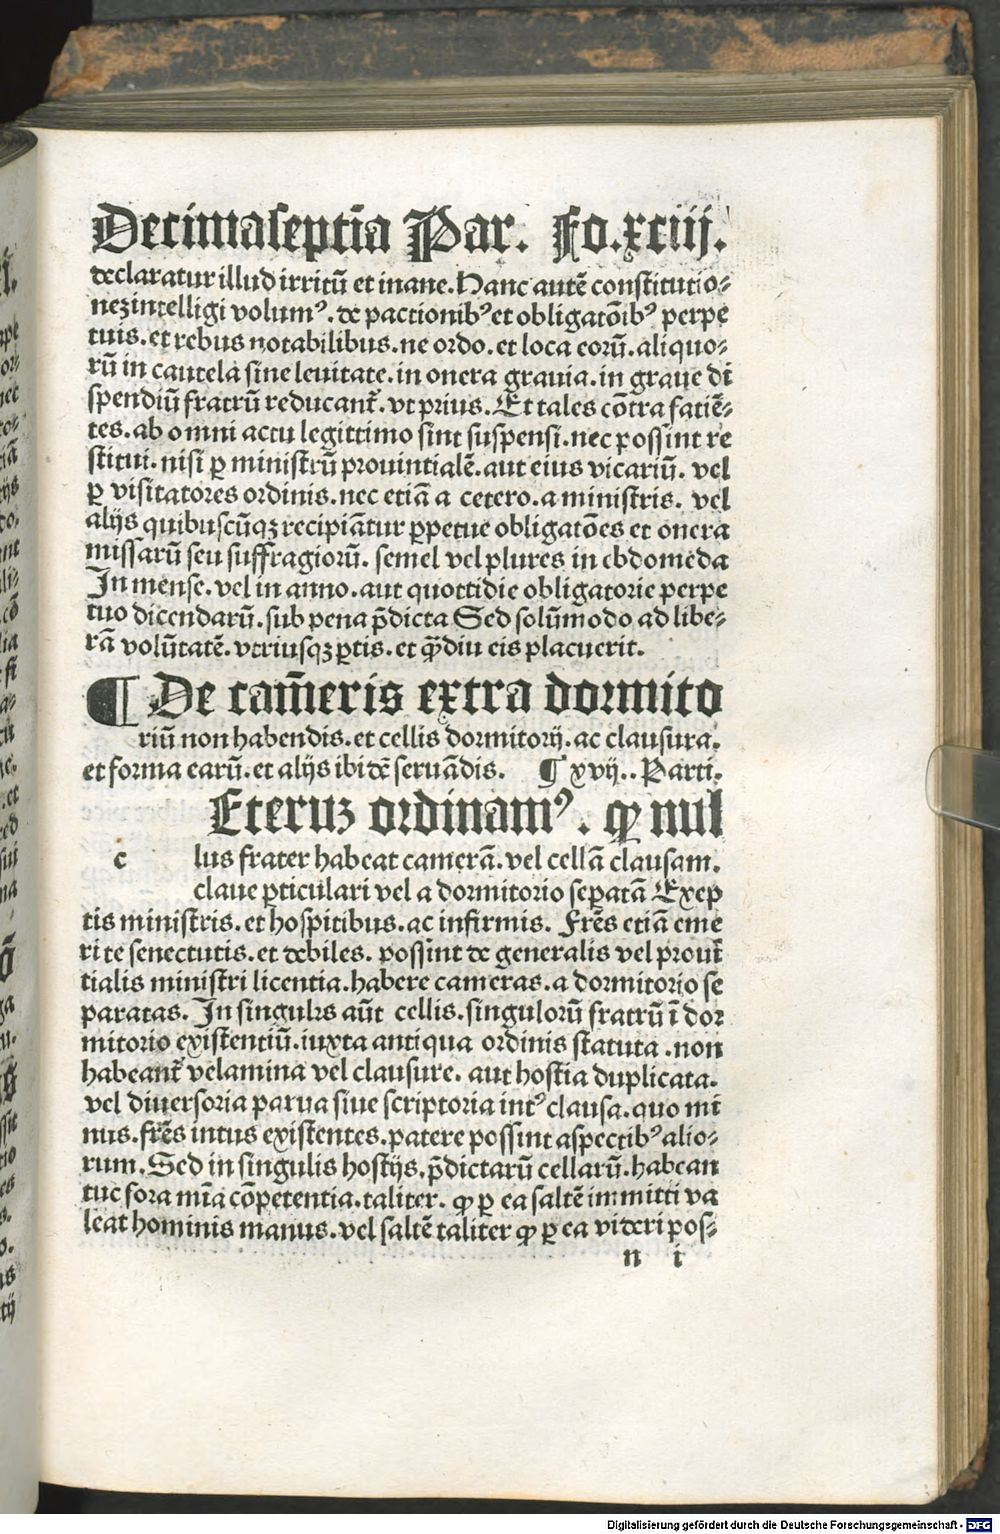 Decimaseptīa Par. Fo.xciij.
declaratur illud irritū et inane. Hanc autē constitutio⸗
neꝫ intelligi volumꝰ. de pactionibꝰ et obligatōibꝰ perpe
tuis. et rebus notabilibus. ne ordo. et loca eorū. aliquo⸗
rū in cautela sine leuitate. in onera grauia. in graue di
spendiū fratrū reducant̄. vt prius. Et tales cōtra fatiē⸗
tes. ab omni actu legittimo sint suspensi. nec possint re
stitui. nisi ꝑ ministrū prouintialē. aut eius vicariū. vel
ꝑ visitatores ordinis. nec etiā a cetero. a ministris. vel
alijs quibuscūqꝫ recipiātur ꝑpetue obligatōes et onera
missarū seu suffragiorū. semel vel plures in ebdomeda
In mense. vel in anno. aut quottidie obligatorie perpe
tuo dicendarū. sub pena p̄dicta Sed solūmodo ad libe⸗
rā volūtatē. vtriusqꝫ ꝑtis. et q̄diu eis placuerit.
¶ De cam̄eris extra dormito
riū non habendis. et cellis dormitorij. ac clausura.
et forma earū. et alijs ibidē seruādis. ¶ xvij.. Parti.
Eteruꝫ ordinamꝰ. ꝙ nul
c lus frater habeat camerā. vel cellā clausam.
claue ꝑticulari vel a dormitorio seꝑatā Exep
tis ministris. et hospitibus. ac infirmis. Fr̄es etiā eme
rite senectutis. et debiles. possint de generalis vel prouī
tialis ministri licentia. habere cameras. a dormitorio se
paratas. In singulis aūt cellis. singulorū fratrū ī dor
mitorio existentiū. iuxta antiqua ordinis statuta. non
habeant̄ velamina vel clausure. aut hostia duplicata.
vel diuersoria parua siue scriptoria intꝰ clausa. quo mi
nus. fr̄es intus existentes. patere possint aspectibꝰ alio⸗
rum. Sed in singulis hostijs. p̄dictarū cellarū. habean
tuc foramīa cōpetentia. taliter. ꝙ ꝑ ea saltē immitti va
leat hominis manus. vel saltē taliter ꝙ ꝑ ea videri pos⸗
n i
Digitalisierung gefördert durch die Deutsche Forschungsgemeinschaft - DFG